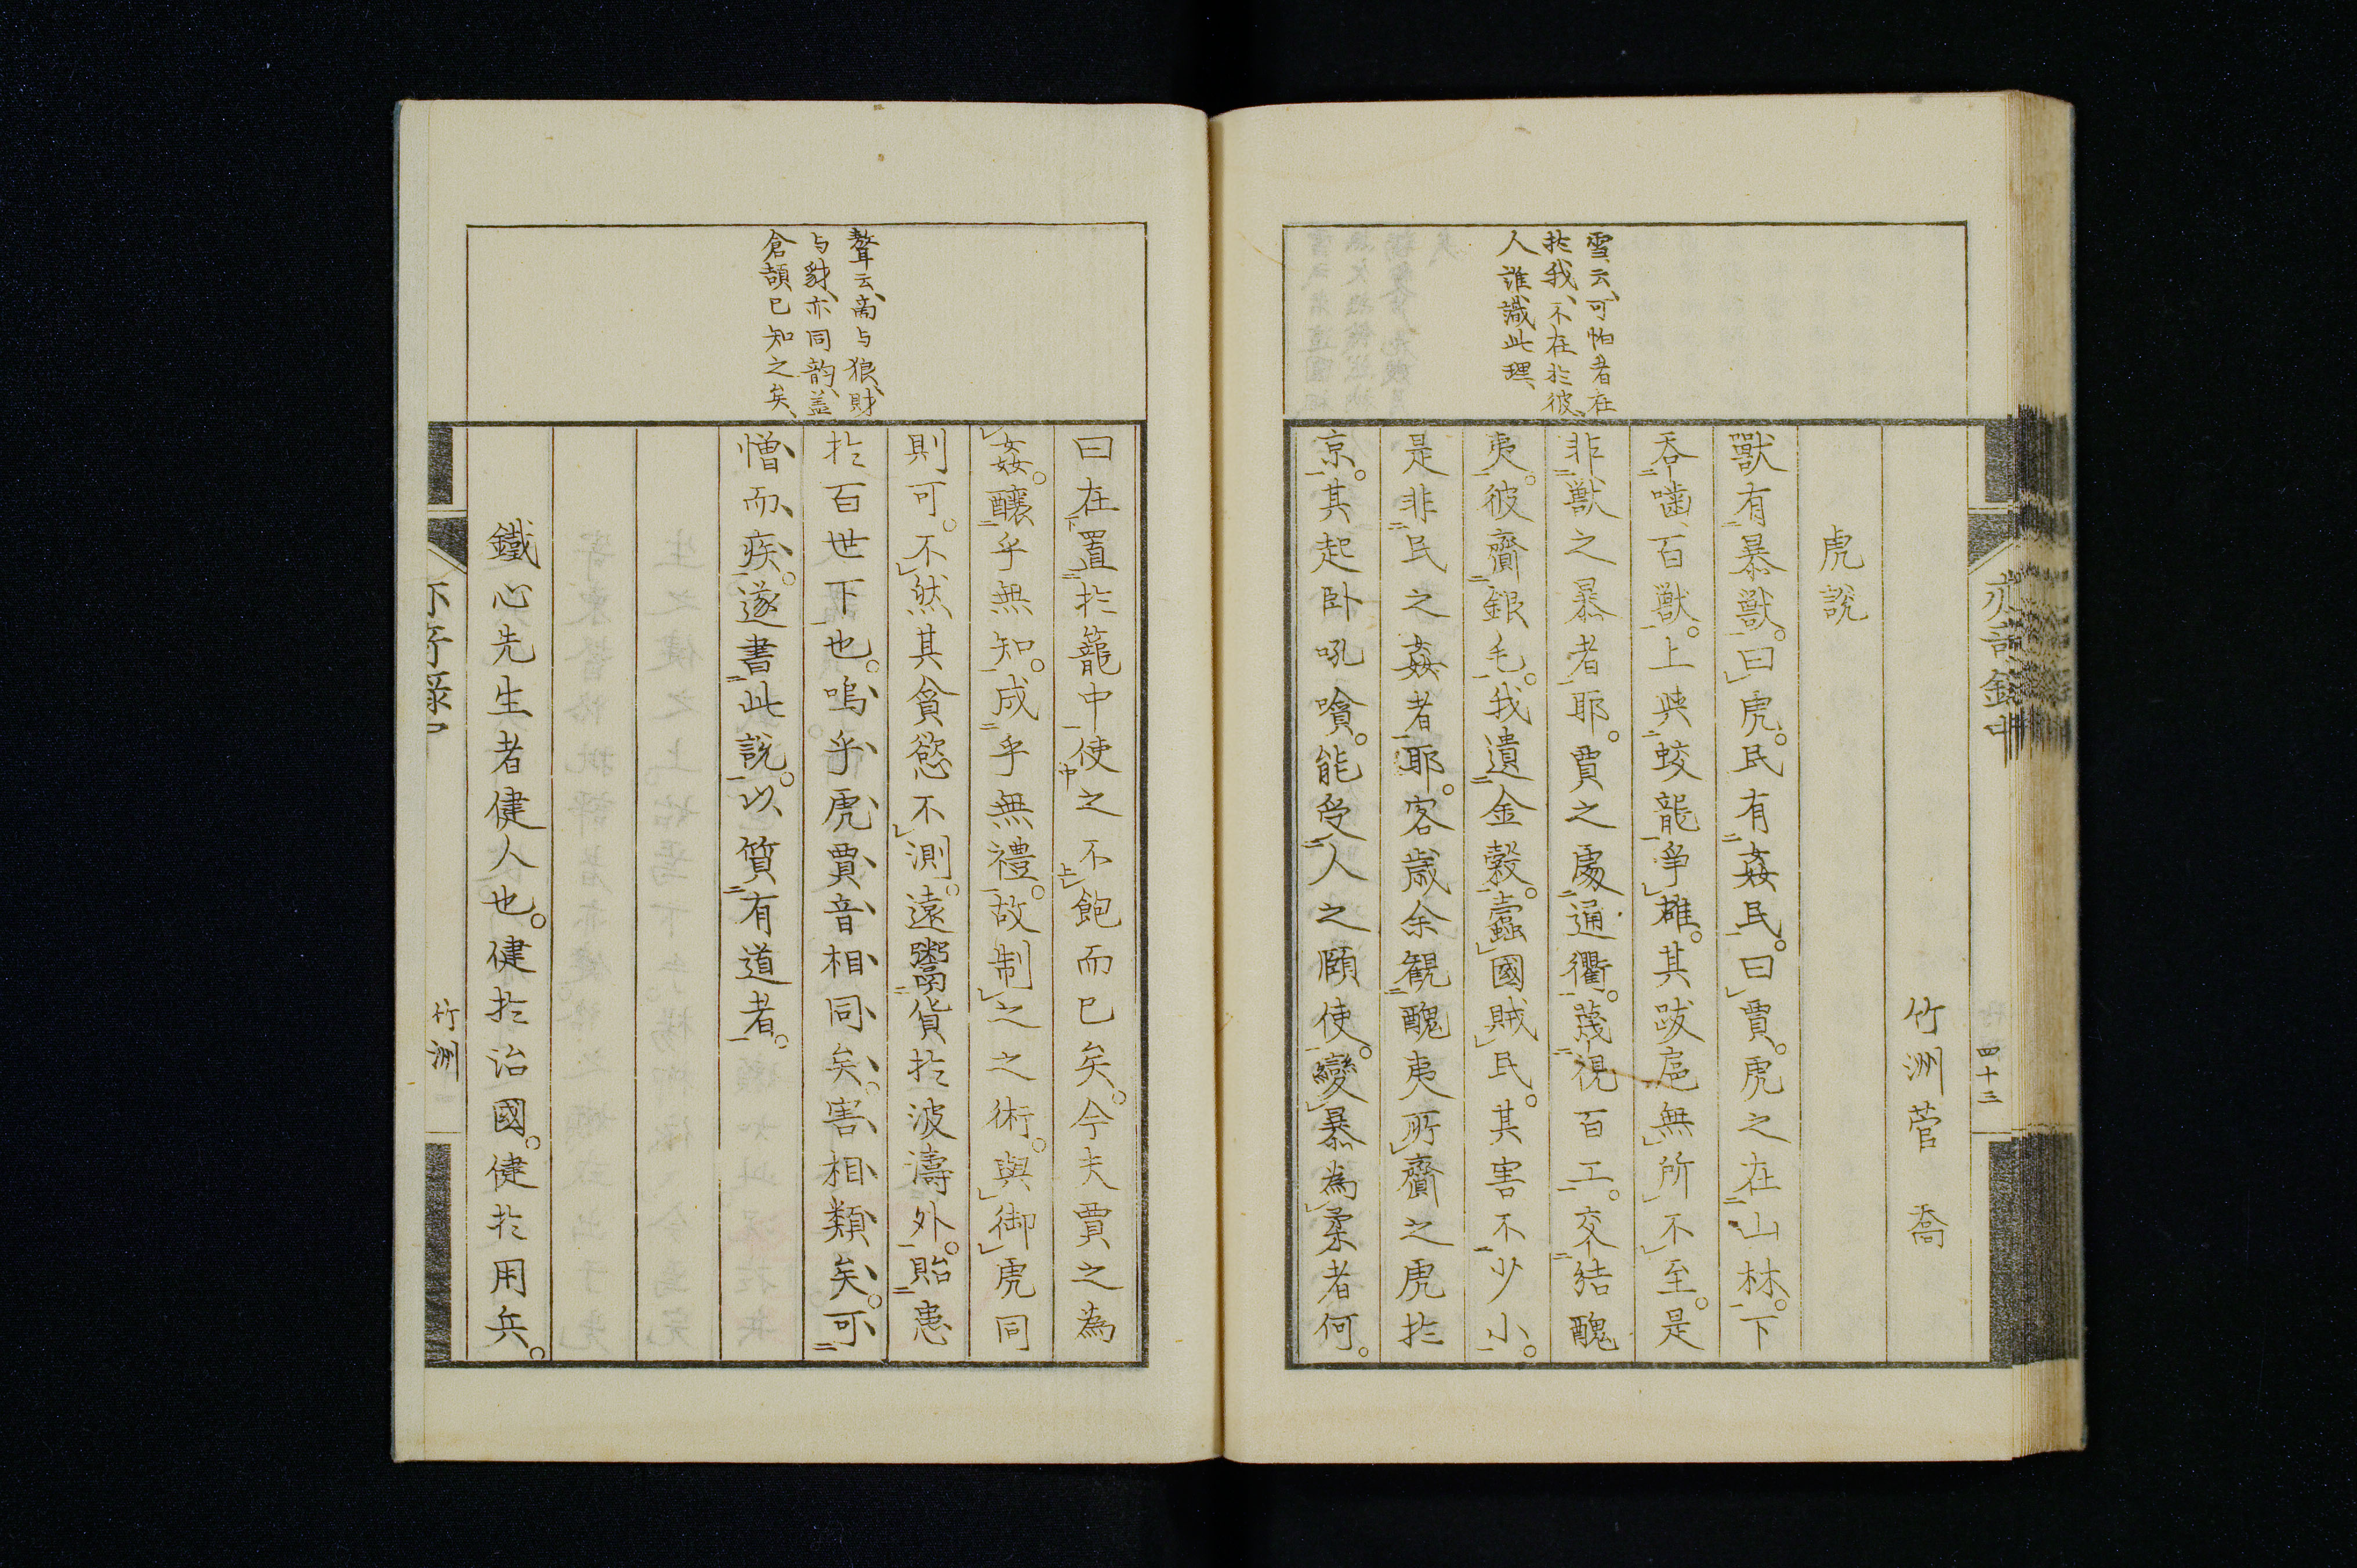 竹洲菅 喬
虎說
獸有暴獣。曰虎。民有姦民。曰賈。虎之在山林。下
吞噛百獣。上與蛟龍爭雄。其跋扈無所不至。是
非獣之暴者耶。賈之處通衢。蔑視百工。交結醜
夷。彼齎銀毛。我遺金穀。蠹國賊民。其害不少小。
是非民之姦者耶。客歲余観醜夷所齎之虎於
京。其起卧吼喰。能受人之頤使。變暴為柔者何。
雪云、可怕者在
於我、不在於彼、
人誰識此理、
四十三
曰在置於籠中使之不飽而已矣。今夫賈之為
姦。釀乎無知。成乎無禮。故制之之術。與御虎同
則可。不然其貪慾不測。遠鬻貨於波濤外。貽患
於百世下也。嗚乎虎賈音相同矣。害相類矣。可
憎而疾。遂書此說。以質有道者。
聱云、商与狼、財
与豺、亦同韵、蓋
倉頡已知之矣、
鐵心先生者健人也。健於治國。健於用兵。
竹洲